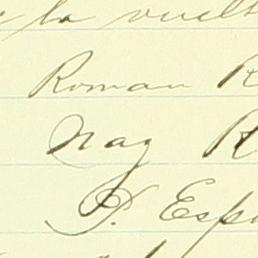 la vuelt
Roman R
Nag R
P. Esp